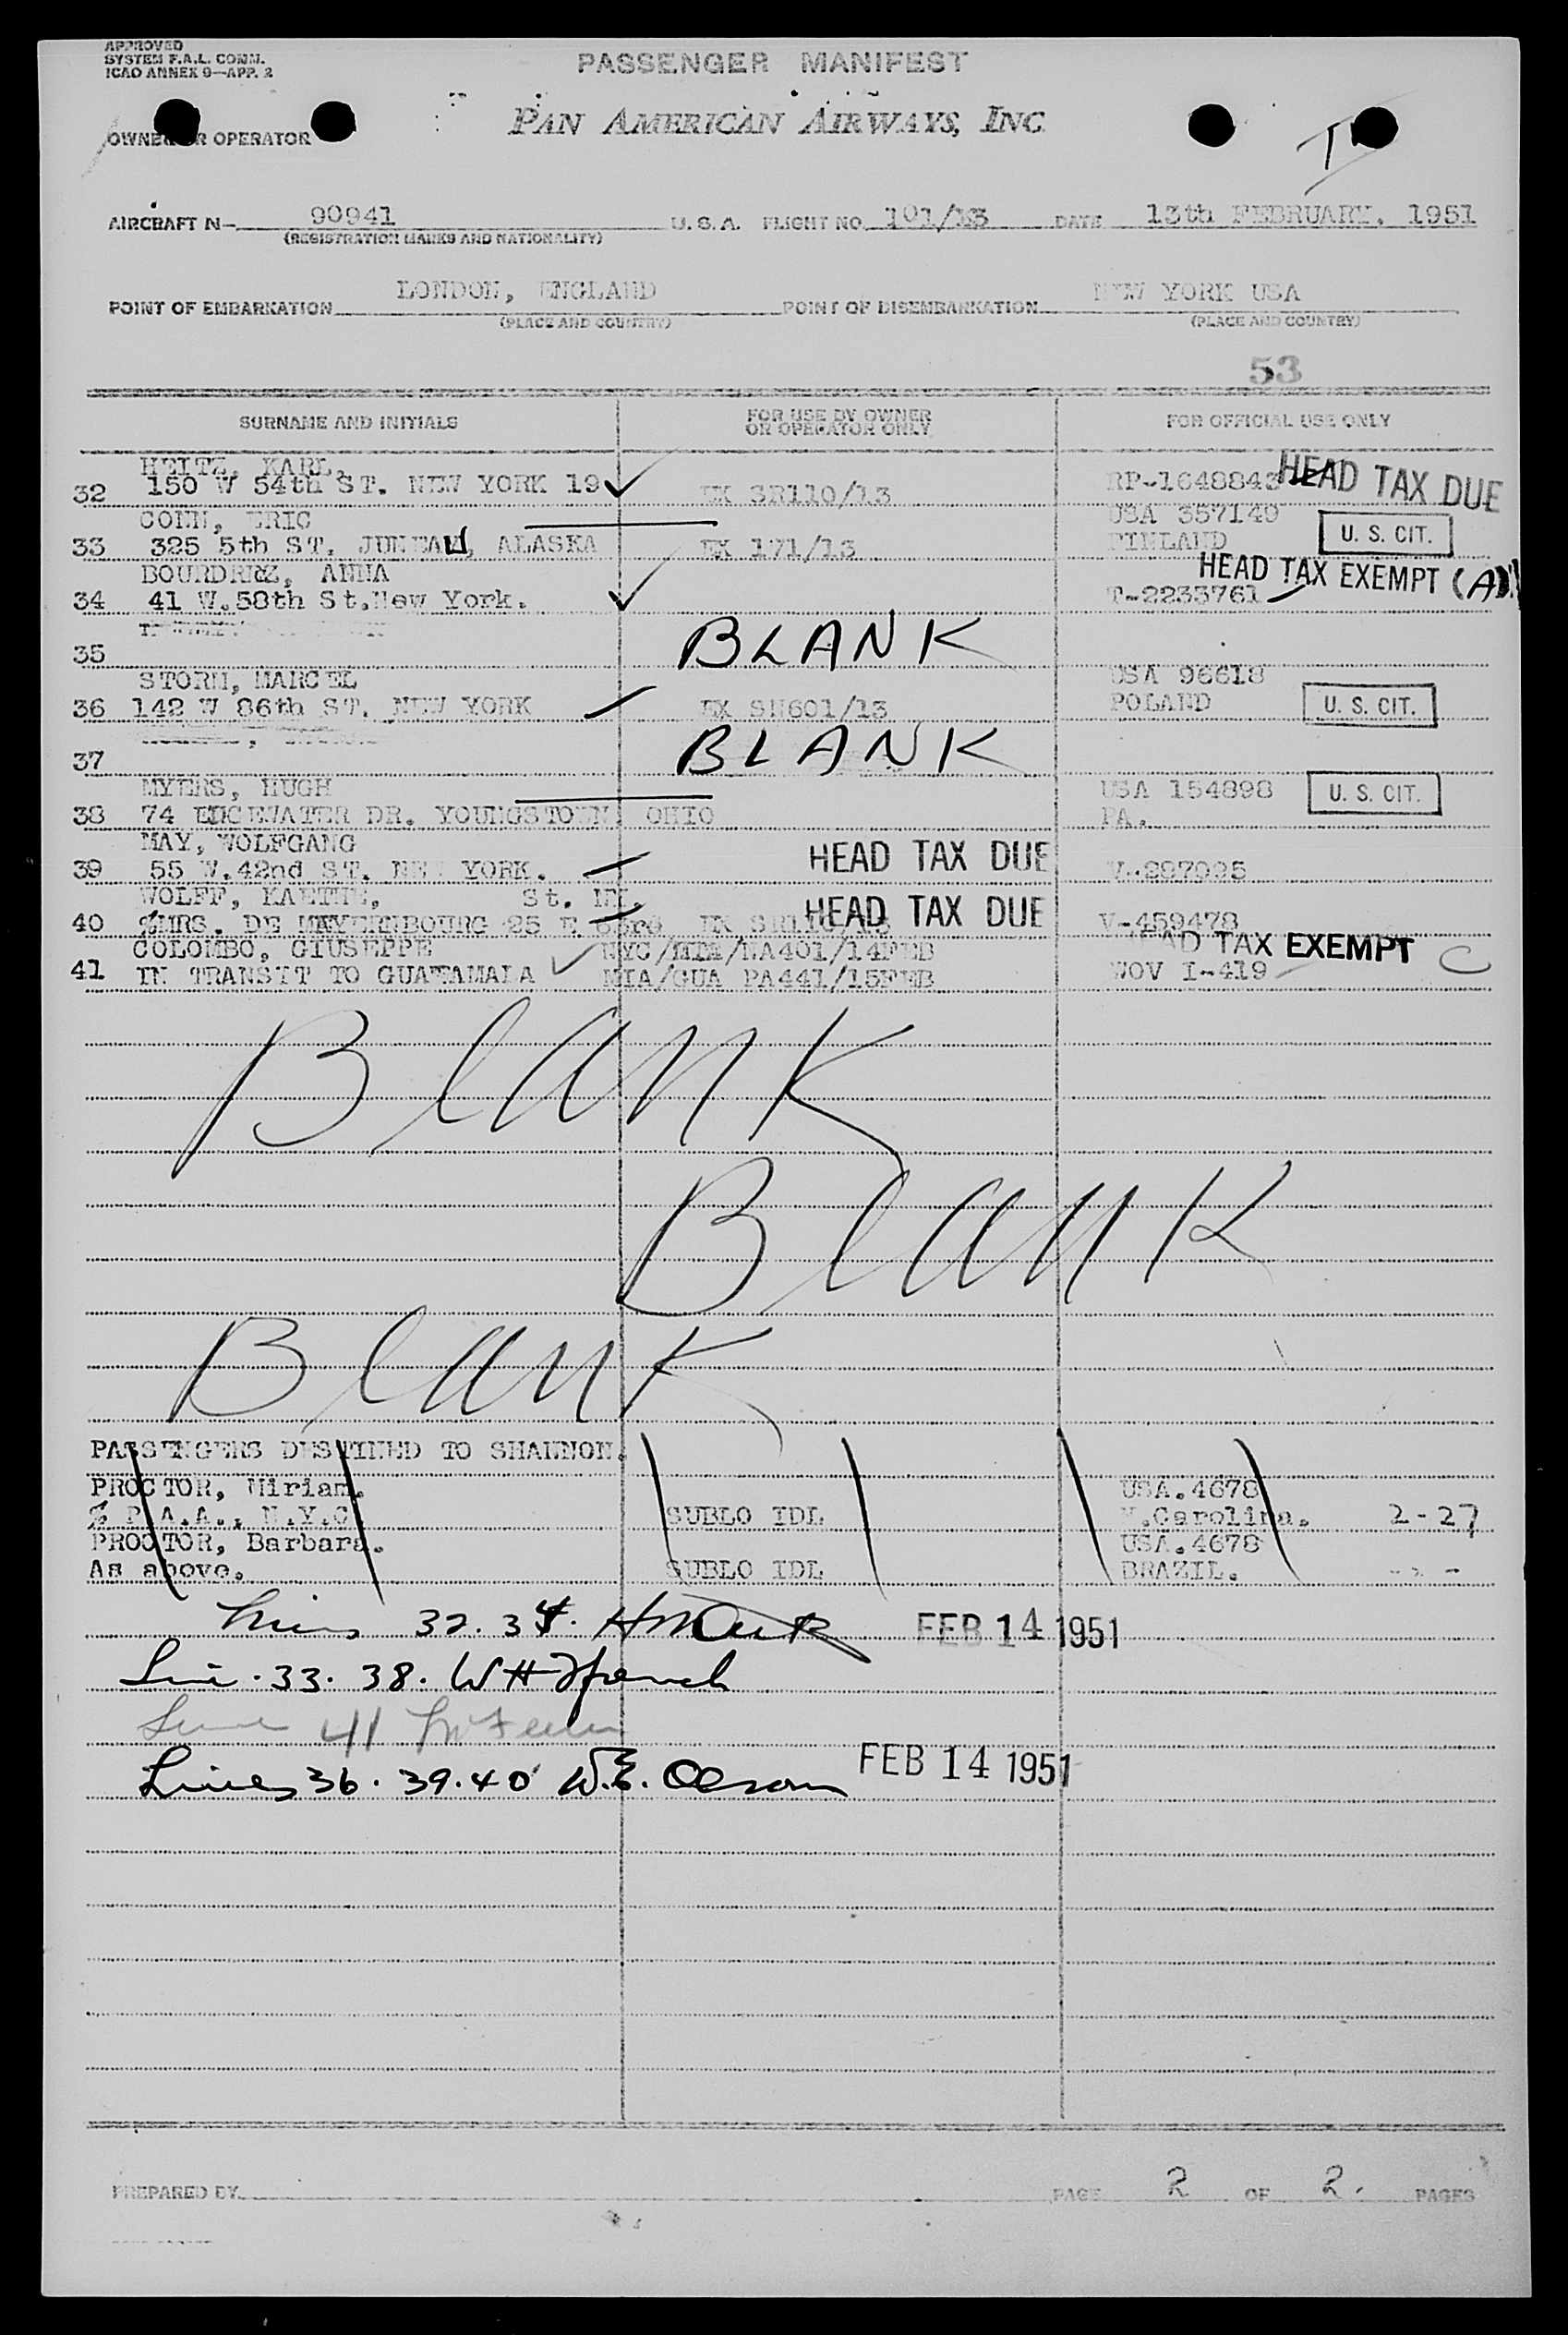 APPROVED
SYSTEM F.A.L. COMM.
ICAO ANNEX 9—APP. 2
PASSENGER MANIFEST
PAN AMERICAN AIRWAYS, INC.
OWNER OR OPERATOR
AIRCRAFT N- 90941 U. S. A. FLIGHT NO. 101/13 DATE 13th FEBRUARY. 1951
(REGISTRATION MARKS AND NATIONALITY)
POINT OF EMBARKATION LONDON, ENGLAND POINT OF DISEMBARKATION NEW YORK USA
(PLACE AND COUNTRY) (PLACE AND COUNTRY)
53
SURNAME AND INITIALS FOR USE BY OWNER OR OPERATOR ONLY FOR OFFICIAL USE ONLY
HEITZ, KARL. HEAD TAX DUE
32 150 W 54th ST. NEW YORK 19 EX SR110/13 RP-1648843
ERIC USA 357149
33 325 5th ST. JUNEAU, ALASKA EX 171/13 FINLAND U. S. CIT.
ANNA HEAD TAX EXEMPT (A)
34 41 W.58th St.New York. T-2233761
35 BLANK
STORM, MARCEL USA 96618
36 142 W 86th ST. NEW YORK EX SN601/13 POLAND U. S. CIT.
37 BLANK
MYERS, HUGH USA 154898 U. S. CIT.
38 74 EDGEWATER DR. YOUNGSTOWN OHIO PA.
MAY, WOLFGANG HEAD TAX DUE
39 55 W.42nd ST. NEW YORK. V-297095
WOLFF, KAETHE, St. HEAD TAX DUE
40 %MRS. DE 25 E 63rd EX SR110/13 V-459478
COLOMBO, GIUSEPPE NYC/MIA/NA401/14FEB HEAD TAX EXEMPT C
41 IN TRANSIT TO GUATAMALA MIA/GUA PA441/15FEB NOV I-419
Blank
Blank
Blank
PASSENGERS DESTINED TO SHANNON.
PROCTOR, Miriam. USA.4678
% P.A.A., N.Y.C. SUBLO IDL N.Carolina. 2-27
PROCTOR, Barbara. USA.4678
As above. SUBLO IDL BRAZIL.
Lines 32. 34. FEB 14 1951
Line. 33. 38. WH French
Line 41
Lines 36. 39. 40 W.E. Olson FEB 14 1951
PREPARED BY PAGE 2 OF 2. PAGES